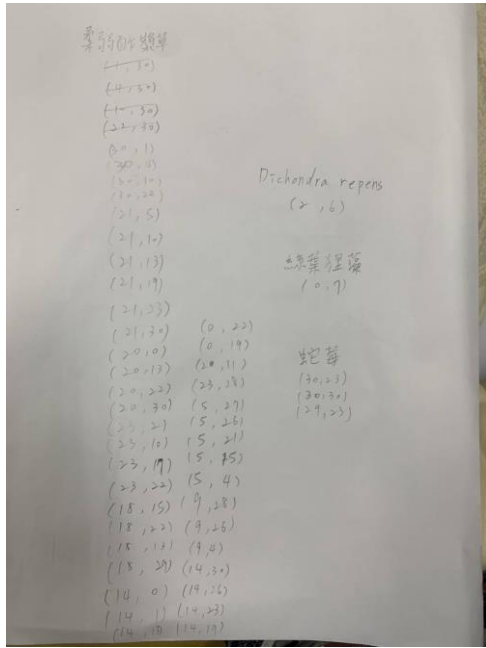 酢漿草
(1,30)
(4,30)
(10,30)
(22,30)
(30,1)
(30,10)
(30,22)
(21,5)
(21,10)
(21,13)
(21,19)
(21,23)
(21,30)
(20,0)
(20,13)
(20,22)
(20,30)
(23,2)
(23,10)
(23,19)
(23,22)
(18,15)
(18,22)
(18,13)
(18,29)
(14,0)
(14,1)
(0,22)
(0,19)
(20,11)
(23,28)
(5,27)
(5,26)
(5,21)
(5,15)
(5,4)
(9,28)
(9,26)
(9,4)
(14,30)
(14,26)
(14,23)
(14,19)
Dichondra repens
(2,6)
(0,9)
蛇莓
(30,23)
(30,30)
(29,23)